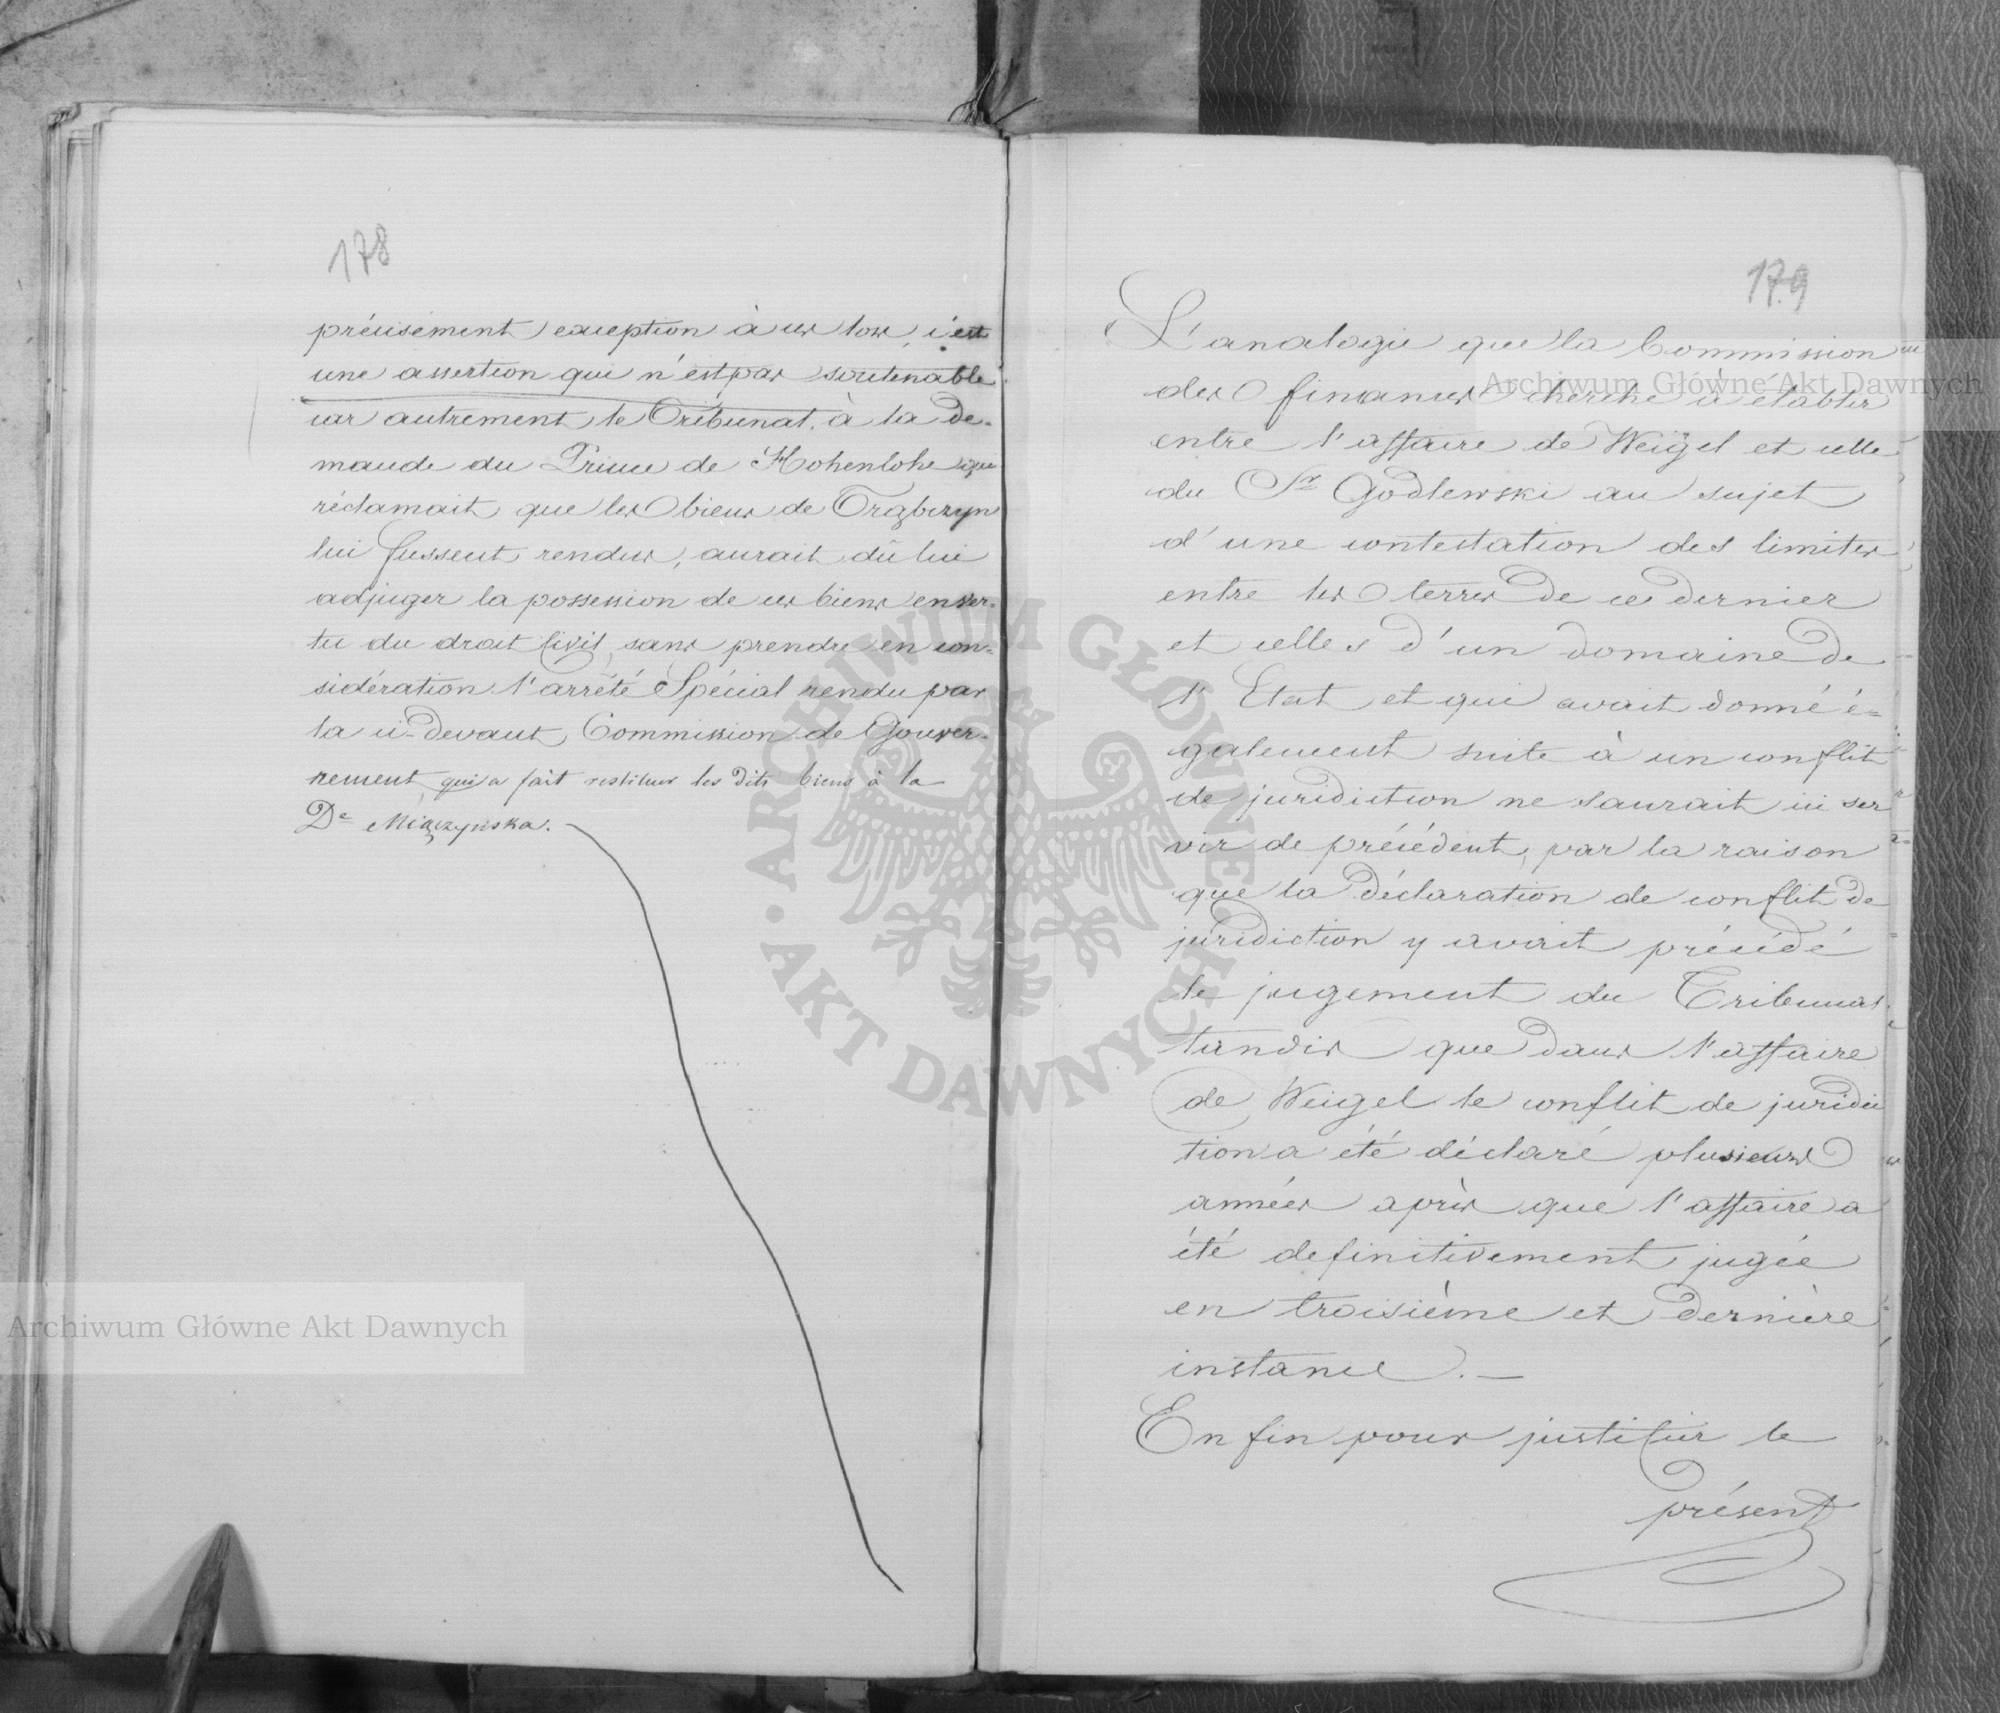 178
précisément exception à ces lois, c'est
une assertion qui n'est pas soutenable
car autrement le Tribunal, à la de-
mande du Prince de Hohenlohe qui
réclamait que les biens de Trąbczyn
lui fussent rendus, aurait dû lui
adjuger la possession de ces biens en ver-
tu du droit Civil, sans prendre en con-
sidération l'arrêté Spécial rendu par
la ci-devant Commission de Gouver-
nement qui a fait restituer les dits biens à la
De Miączyńska.
179
L'analogie que la Commission
des finances cherche à établir
entre l'affaire de Weigel et celle
du Sr Godlewski au sujet
d'une contestation des limites
entre les terres de ce dernier
et celles d'un domaine de
l'Etat et qui avait donné é-
galement suite à un conflit
de juridiction ne saurait ici ser
vir de précédent, par la raison
que la déclaration de conflit de
juridiction y avait précédé
le jugement du Tribunal
tandis que dans l'affaire
de Weigel le conflit de juridic
tion a été déclaré plusieurs
années après que l'affaire a
été definitivement jugée
en troisième et dernière
instance. —
En fin pour justifier le
présent
Archiwum Główne Akt Dawnych
Archiwum Główne Akt Dawnych
ARCHIWUM GŁÓWNE · AKT DAWNYCH ·